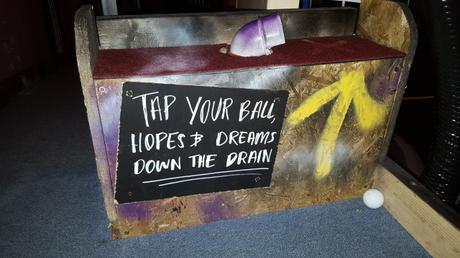 TAP YOUR BALL,
HOPES & DREAMS
DOWN THE DRAIN